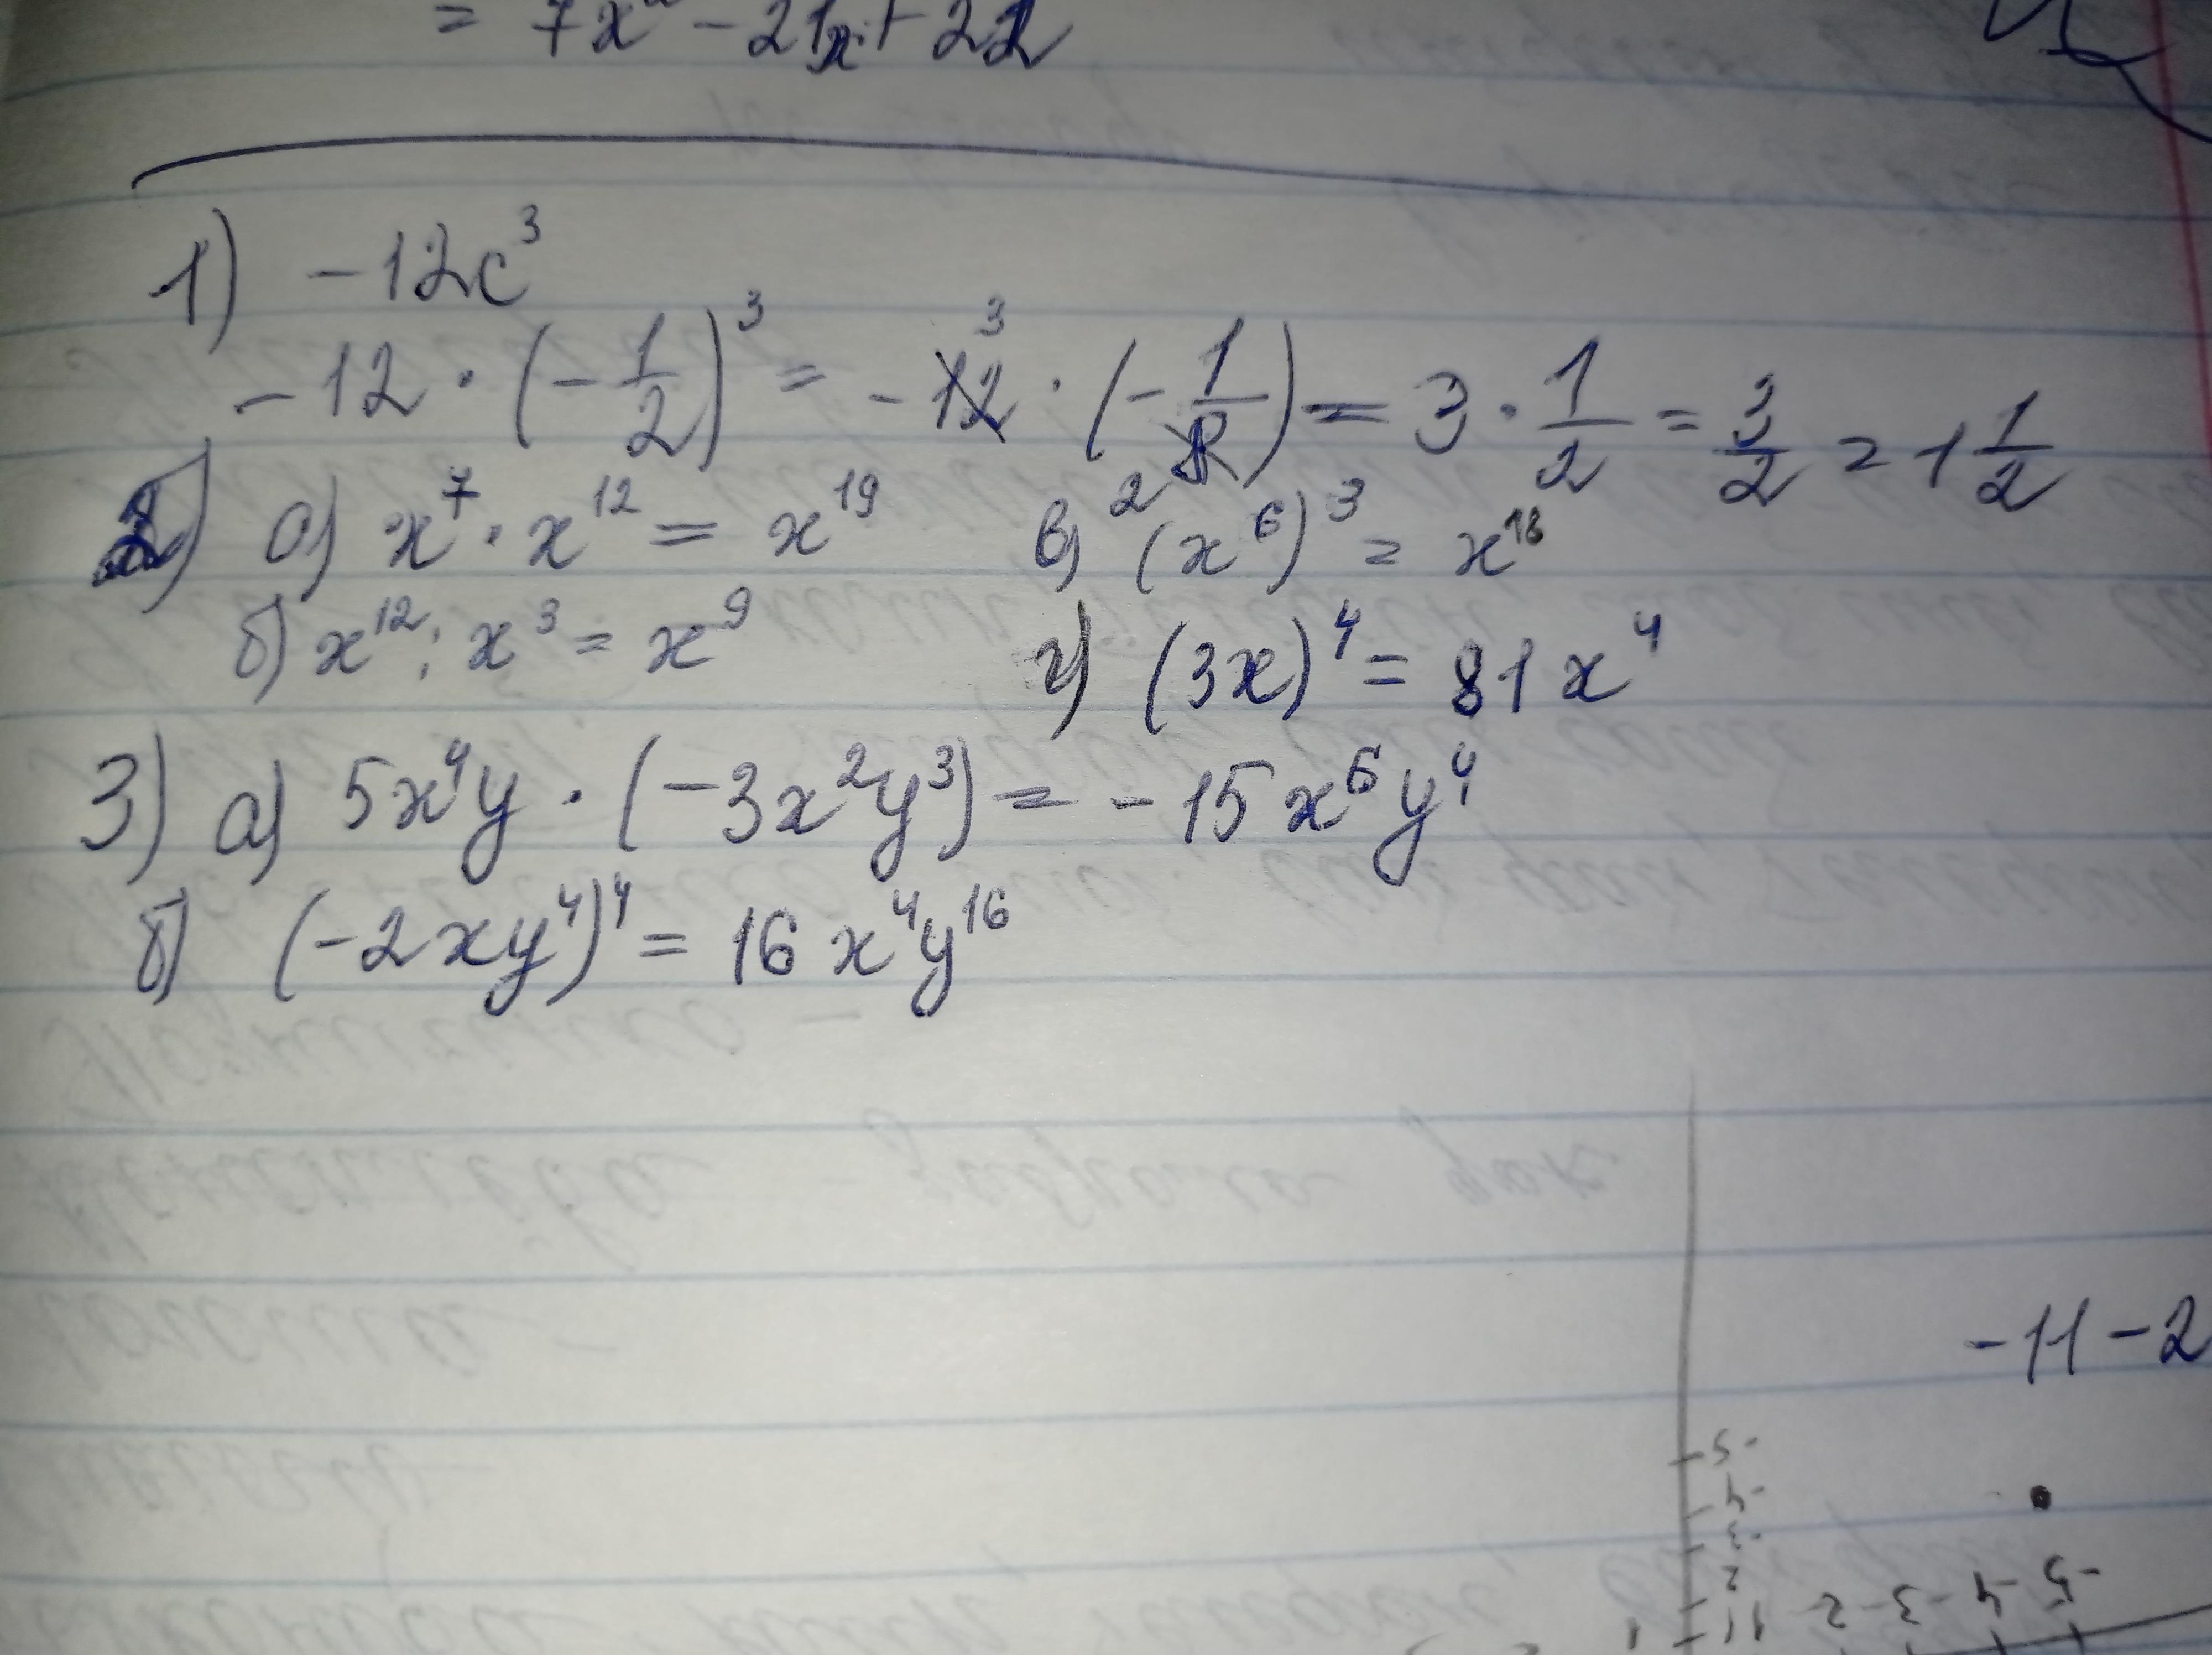 = 7x² - 21x + 22
1) -12c³
-12 · (-1/2)³ = -12 · (-1/8) = 3 · 1/2 = 3/2 = 1 1/2
2) а) x⁷ · x¹² = x¹⁹ в) (x⁶)³ = x¹⁸
б) x¹² : x³ = x⁹ г) (3x)⁴ = 81x⁴
3) а) 5x⁴y · (-3x²y³) = -15x⁶y⁴
б) (-2xy⁴)⁴ = 16x⁴y¹⁶
-11-2
-5
-4
-3
2
11 2 - 3 - 4 - 5 -